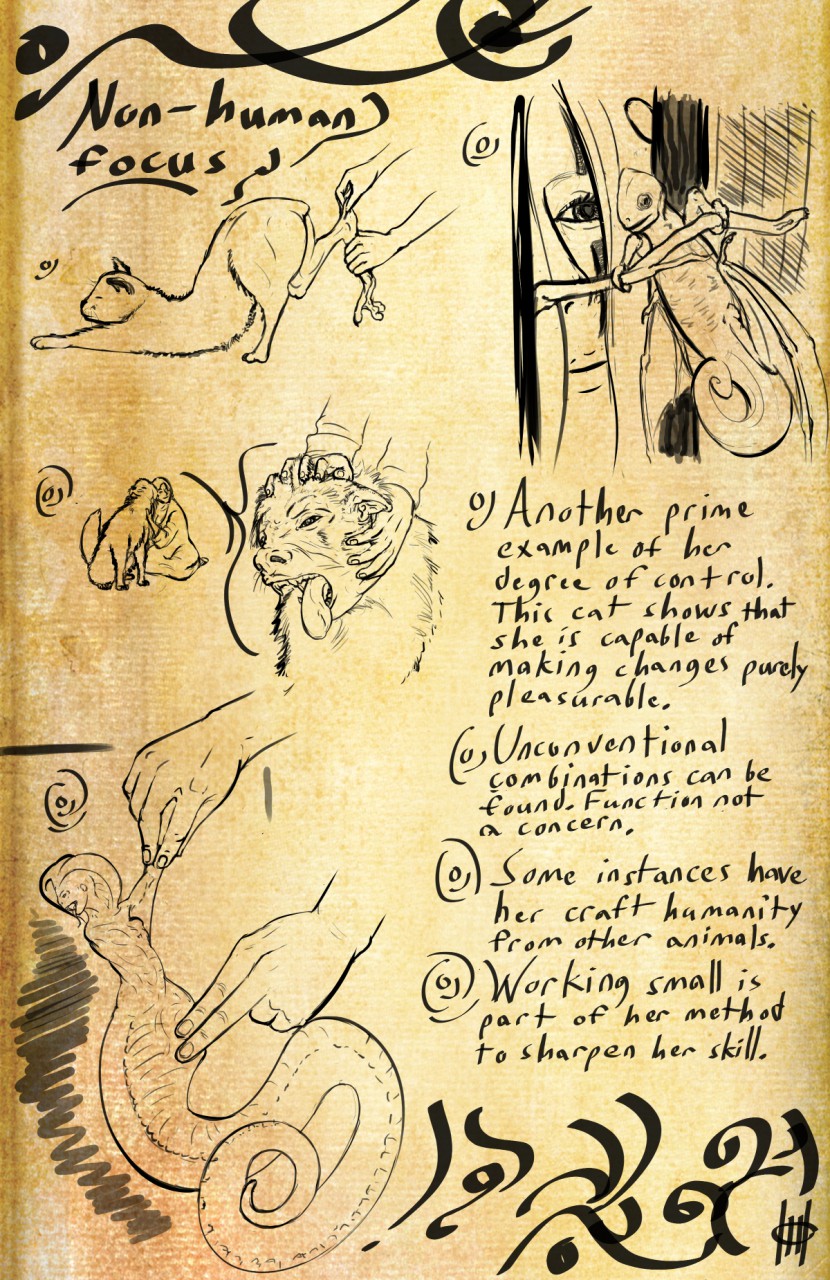 Non-human
focus
Another prime
example of her
degree of control.
This cat shows that
she is capable of
making changes purely
pleasurable.
Unconventional
combinations can be
found. Function not
a concern.
Some instances have
her craft humanity
from other animals.
Working small is
part of her method
to sharpen her skill.